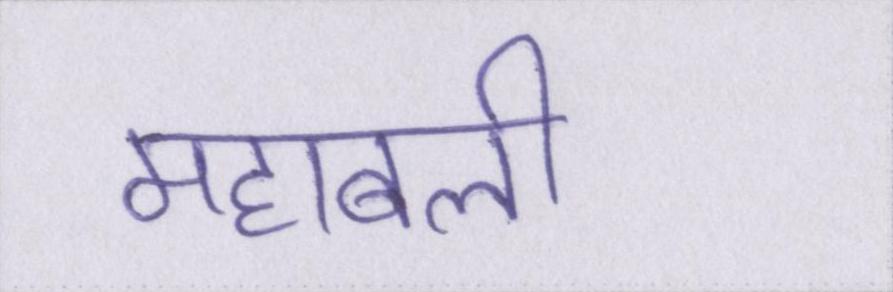 महाबली